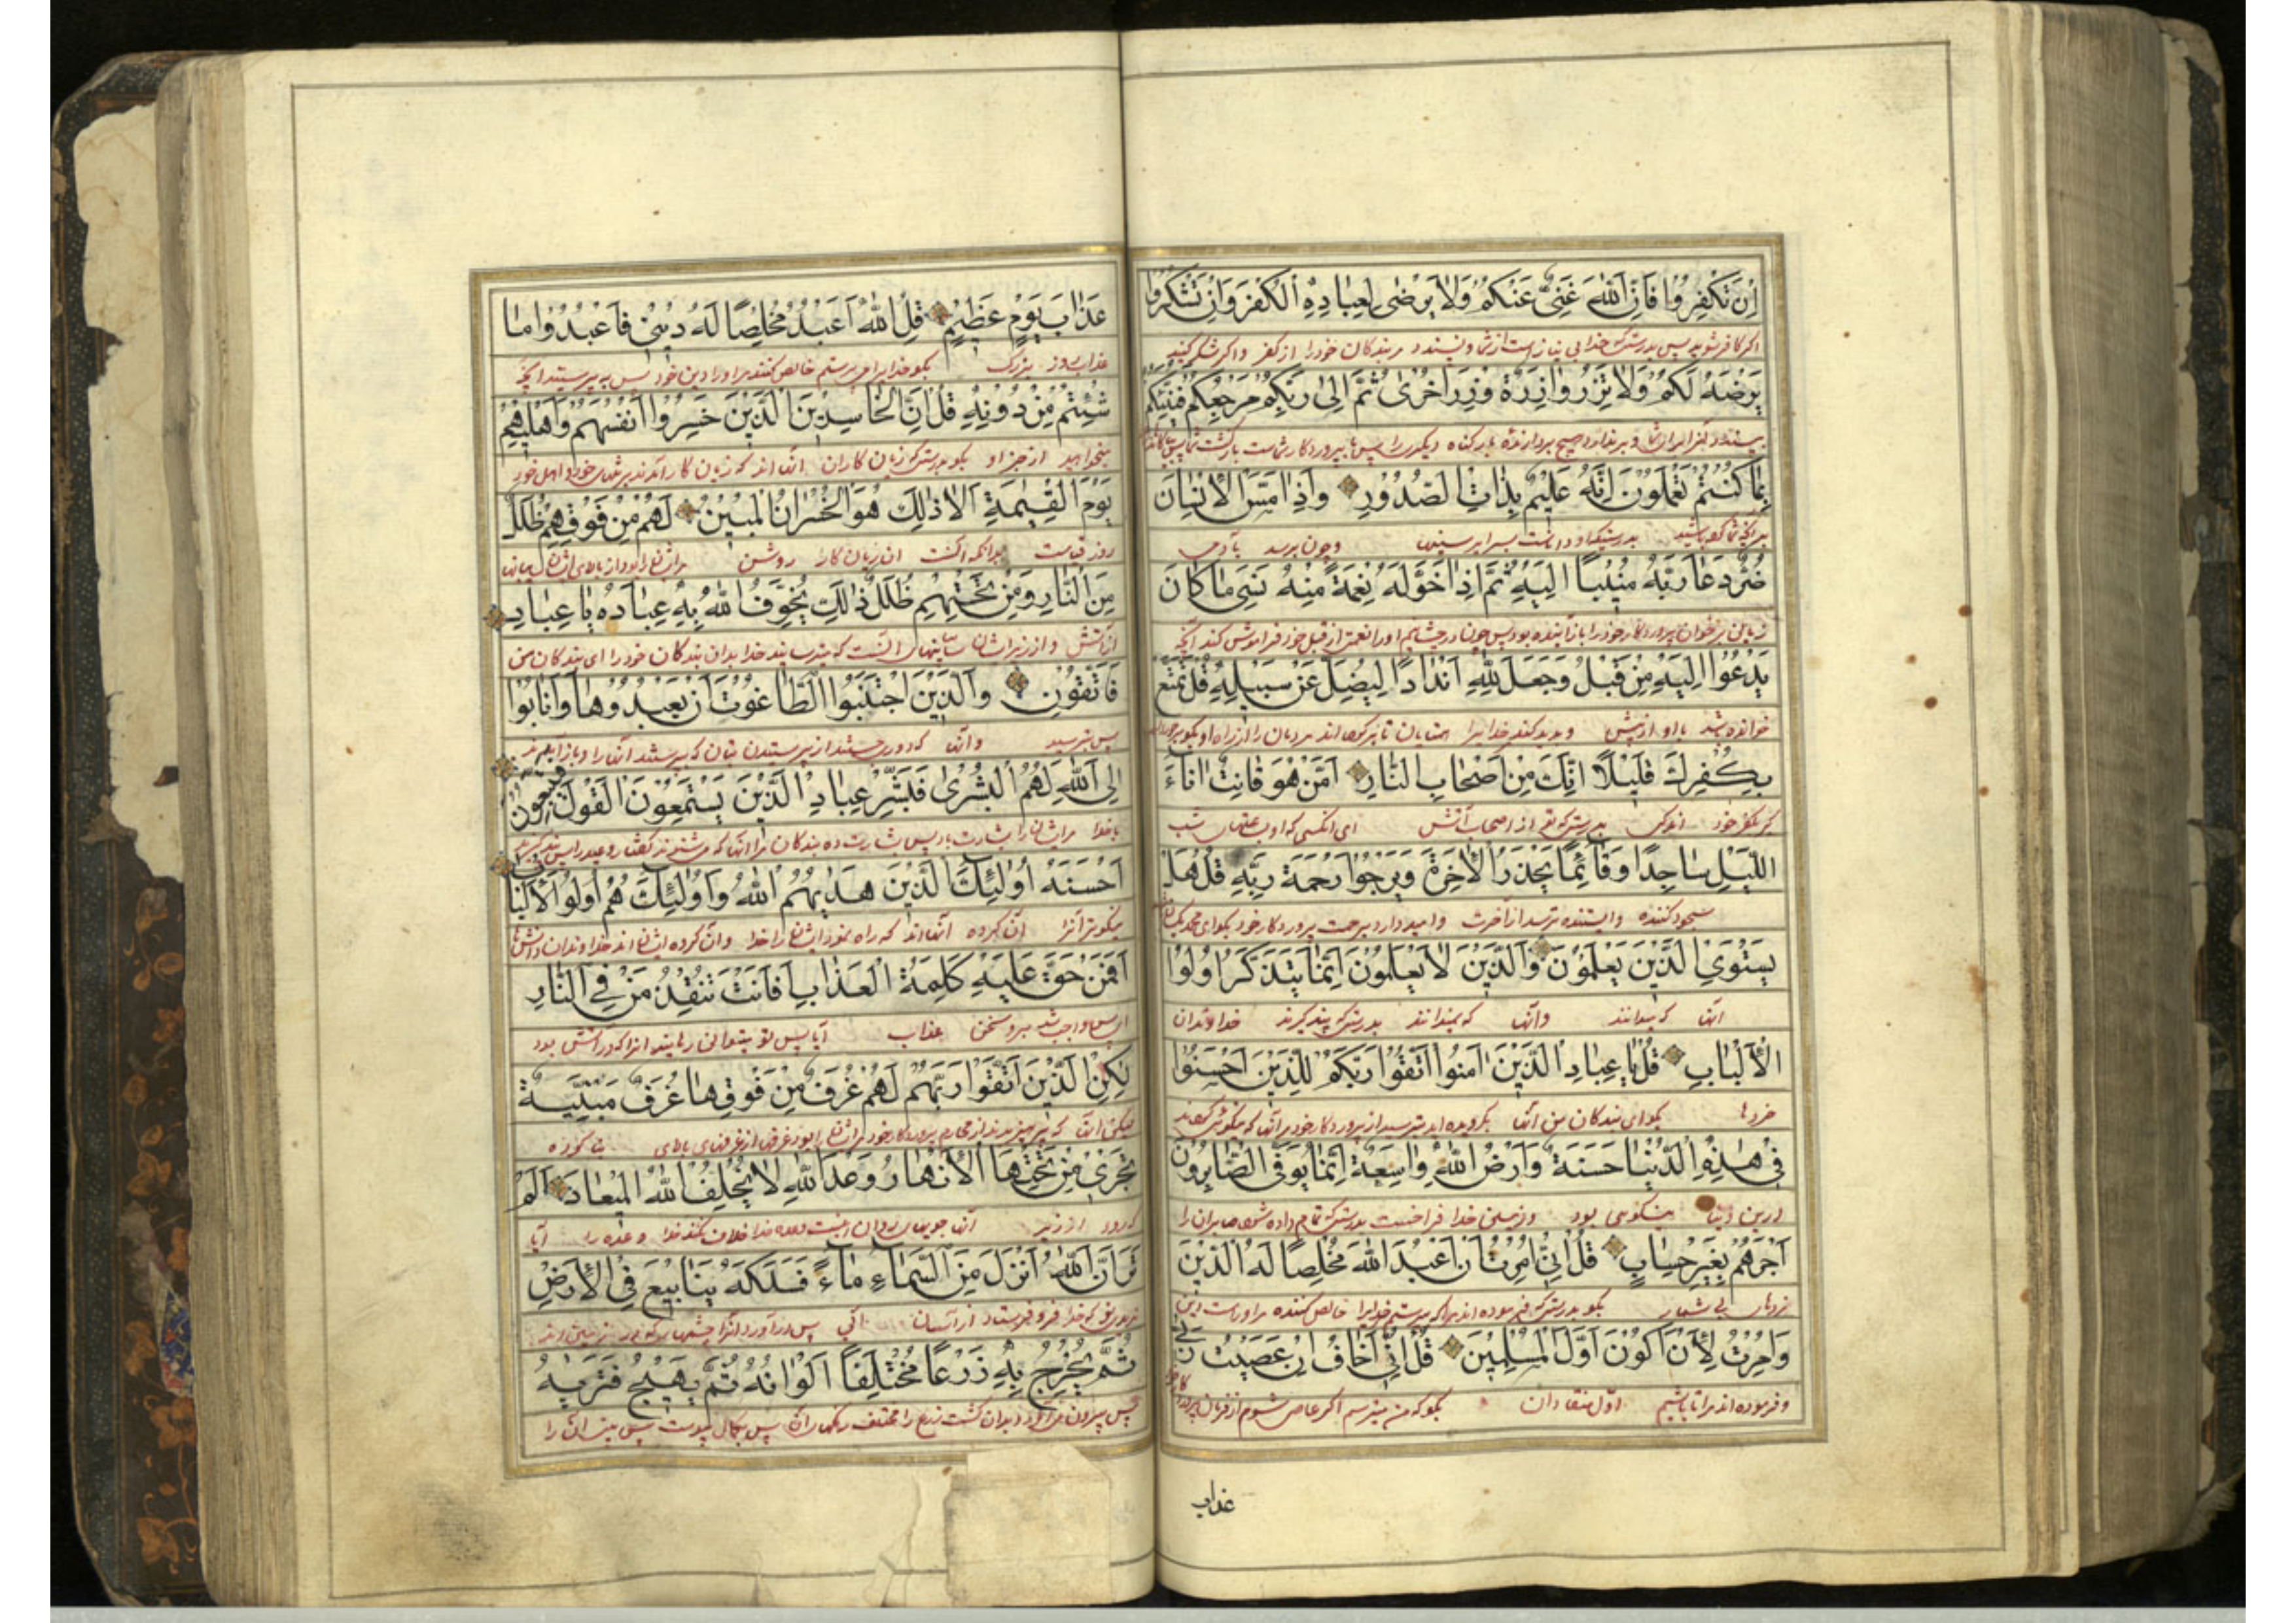 اِنْ تَكْفُرُوا فَاِنَّ اللّٰهَ غَنِىٌّ عَنْكُمْ وَلَا يَرْضٰى لِعِبَادِهِ الْكُفْرَ وَاِنْ تَشْكُرُوا
اکر کافر شوید پس بدرستیکه خدا بی نیاز است از شما و نپسندد مر بندکان خود را از کفر و اکر شکر کنید
يَرْضَهُ لَكُمْ وَلَا تَزِرُ وَازِرَةٌ وِزْرَ اُخْرٰى ثُمَّ اِلٰى رَبِّكُمْ مَرْجِعُكُمْ فَيُنَبِّئُكُمْ
و برندارد هیچ بردارنده بار کناه دیکری را پس با پروردکار شماست بازکشت شما پس
بِمَا كُنْتُمْ تَعْمَلُونَ اِنَّهُ عَلِيمٌ بِذَاتِ الصُّدُورِ وَاِذَا مَسَّ الْاِنْسَانَ
بدرستیکه او داناست بسرایر سینها و چون برسد بآدمی
ضُرٌّ دَعَا رَبَّهُ مُنِيبًا اِلَيْهِ ثُمَّ اِذَا خَوَّلَهُ نِعْمَةً مِنْهُ نَسِىَ مَا كَانَ
پروردکار خود را باز آینده بود پس چون او را نعمتی از قبل خود فراموش کند آنچه
يَدْعُوا اِلَيْهِ مِنْ قَبْلُ وَجَعَلَ لِلّٰهِ اَنْدَادًا لِيُضِلَّ عَنْ سَبِيلِهِ قُلْ تَمَتَّعْ
خوانده شد با او از پیش و پدید کند خدایرا همتایان تا مردمان را از راه او بکو
بِكُفْرِكَ قَلِيلًا اِنَّكَ مِنْ اَصْحَابِ النَّارِ اَمَّنْ هُوَ قَانِتٌ اٰنَاءَ
بکفر خود اندکی بدرستیکه تو از اصحاب آتش ای آنکسی که شب
اللَّيْلِ سَاجِدًا وَقَائِمًا يَحْذَرُ الْاٰخِرَةَ وَيَرْجُوا رَحْمَةَ رَبِّهِ قُلْ هَلْ
سجود کننده و ایستنده ترسد از آخرت و امید دارد برحمت پروردکار خود بکو ای محمد
يَسْتَوِى الَّذِينَ يَعْلَمُونَ وَالَّذِينَ لَا يَعْلَمُونَ اِنَّمَا يَتَذَكَّرُ اُولُوا
آنها که میدانند و آنها که نمیدانند بدرستیکه پند کیرند خداوندان
الْاَلْبَابِ قُلْ يَا عِبَادِ الَّذِينَ اٰمَنُوا اتَّقُوا رَبَّكُمْ لِلَّذِينَ اَحْسَنُوا
خردها بکو ای بندکان من آنها بکرویده اید بترسید از پروردکار خود مر آنها که نیکوئی کردند
فِى هٰذِهِ الدُّنْيَا حَسَنَةٌ وَاَرْضُ اللّٰهِ وَاسِعَةٌ اِنَّمَا يُوَفَّى الصَّابِرُونَ
درین دنیا نیکویی بود و زمین خدا فراخست بدرستیکه تمام داده شود صابران را
اَجْرَهُمْ بِغَيْرِ حِسَابٍ قُلْ اِنِّى اُمِرْتُ اَنْ اَعْبُدَ اللّٰهَ مُخْلِصًا لَهُ الدِّينَ
بی شمار بکو بدرستیکه فرموده اند مرا که بپرستم خدایرا خالص کننده مر او راست دین
وَاُمِرْتُ لِاَنْ اَكُونَ اَوَّلَ الْمُسْلِمِينَ قُلْ اِنِّى اَخَافُ اِنْ عَصَيْتُ رَبِّى
و فرموده اند مرا تا باشم اوّل منقادان بکو که من میترسم اکر عاصی شوم از فرمان
عذاب
عَذَابَ يَوْمٍ عَظِيمٍ قُلِ اللّٰهَ اَعْبُدُ مُخْلِصًا لَهُ دِينِى فَاعْبُدُوا مَا
عذاب روز بزرک بکو خدایرا می پرستم خالص کننده مر او را دین خود پس بپرستید آنچه
شِئْتُمْ مِنْ دُونِهِ قُلْ اِنَّ الْخَاسِرِينَ الَّذِينَ خَسِرُوا اَنْفُسَهُمْ وَاَهْلِيهِمْ
میخواهید از جز او بکو بدرستیکه زیان کاران آنها اند که زیان کار آمدند خود و اهل خود
يَوْمَ الْقِيٰمَةِ اَلَا ذٰلِكَ هُوَ الْخُسْرَانُ الْمُبِينُ لَهُمْ مِنْ فَوْقِهِمْ ظُلَلٌ
روز قیامت بدانکه آنست آن زیان کار روشن مر ایشان را بود از بالای ایشان
مِنَ النَّارِ وَمِنْ تَحْتِهِمْ ظُلَلٌ ذٰلِكَ يُخَوِّفُ اللّٰهُ بِهِ عِبَادَهُ يَا عِبَادِ
از آتش و از زیر ایشان سایبانها آنست که میترساند خدا بدان بندکان خود را ای بندکان من
فَاتَّقُونِ وَالَّذِينَ اجْتَنَبُوا الطَّاغُوتَ اَنْ يَعْبُدُوهَا وَاَنَابُوا
پس بترسید و آنها که دوری جستند از پرستیدن بتان که بپرستند آنها را و باز آمدند
اِلَى اللّٰهِ لَهُمُ الْبُشْرٰى فَبَشِّرْ عِبَادِ الَّذِينَ يَسْتَمِعُونَ الْقَوْلَ فَيَتَّبِعُونَ
با خدا مر ایشان را بشارت باد پس بشارت ده بندکان مرا آنها که می شنوند کفتار
اَحْسَنَهُ اُولٰئِكَ الَّذِينَ هَدٰيهُمُ اللّٰهُ وَاُولٰئِكَ هُمْ اُولُوا الْاَلْبَابِ
نیکوتر آنرا آن کروه آنها اند که راه نمود ایشان را خدا و آن کروه ایشان اند خداوندان دانشها
اَفَمَنْ حَقَّ عَلَيْهِ كَلِمَةُ الْعَذَابِ اَفَاَنْتَ تُنْقِذُ مَنْ فِى النَّارِ
واجب شد برو سخن عذاب آیا پس تو میتوانی رهانید آنرا که در آتش بود
لٰكِنِ الَّذِينَ اتَّقَوْا رَبَّهُمْ لَهُمْ غُرَفٌ مِنْ فَوْقِهَا غُرَفٌ مَبْنِيَّةٌ
لیکن آنها که بپرهیزیدند از محارم پروردکار خود مر ایشان را بود غرفها از غرفهای بالای بنا کرده
تَجْرِى مِنْ تَحْتِهَا الْاَنْهَارُ وَعْدَ اللّٰهِ لَا يُخْلِفُ اللّٰهُ الْمِيعَادَ اَلَمْ
که رود از زیر آنها جویهای روان اینست وعده خدا خلاف نکند خدا وعده را آیا
تَرَ اَنَّ اللّٰهَ اَنْزَلَ مِنَ السَّمَاءِ مَاءً فَسَلَكَهُ يَنَابِيعَ فِى الْاَرْضِ
که خدا فرو فرستاد از آسمان آبی پس در آورد آنرا چشمها که در زمین
ثُمَّ يُخْرِجُ بِهِ زَرْعًا مُخْتَلِفًا اَلْوَانُهُ ثُمَّ يَهِيجُ فَتَرٰيهُ
پس بیرون می آورد بدان کشت زرع را مختلف رنکهای آن پس پس بینی آن را